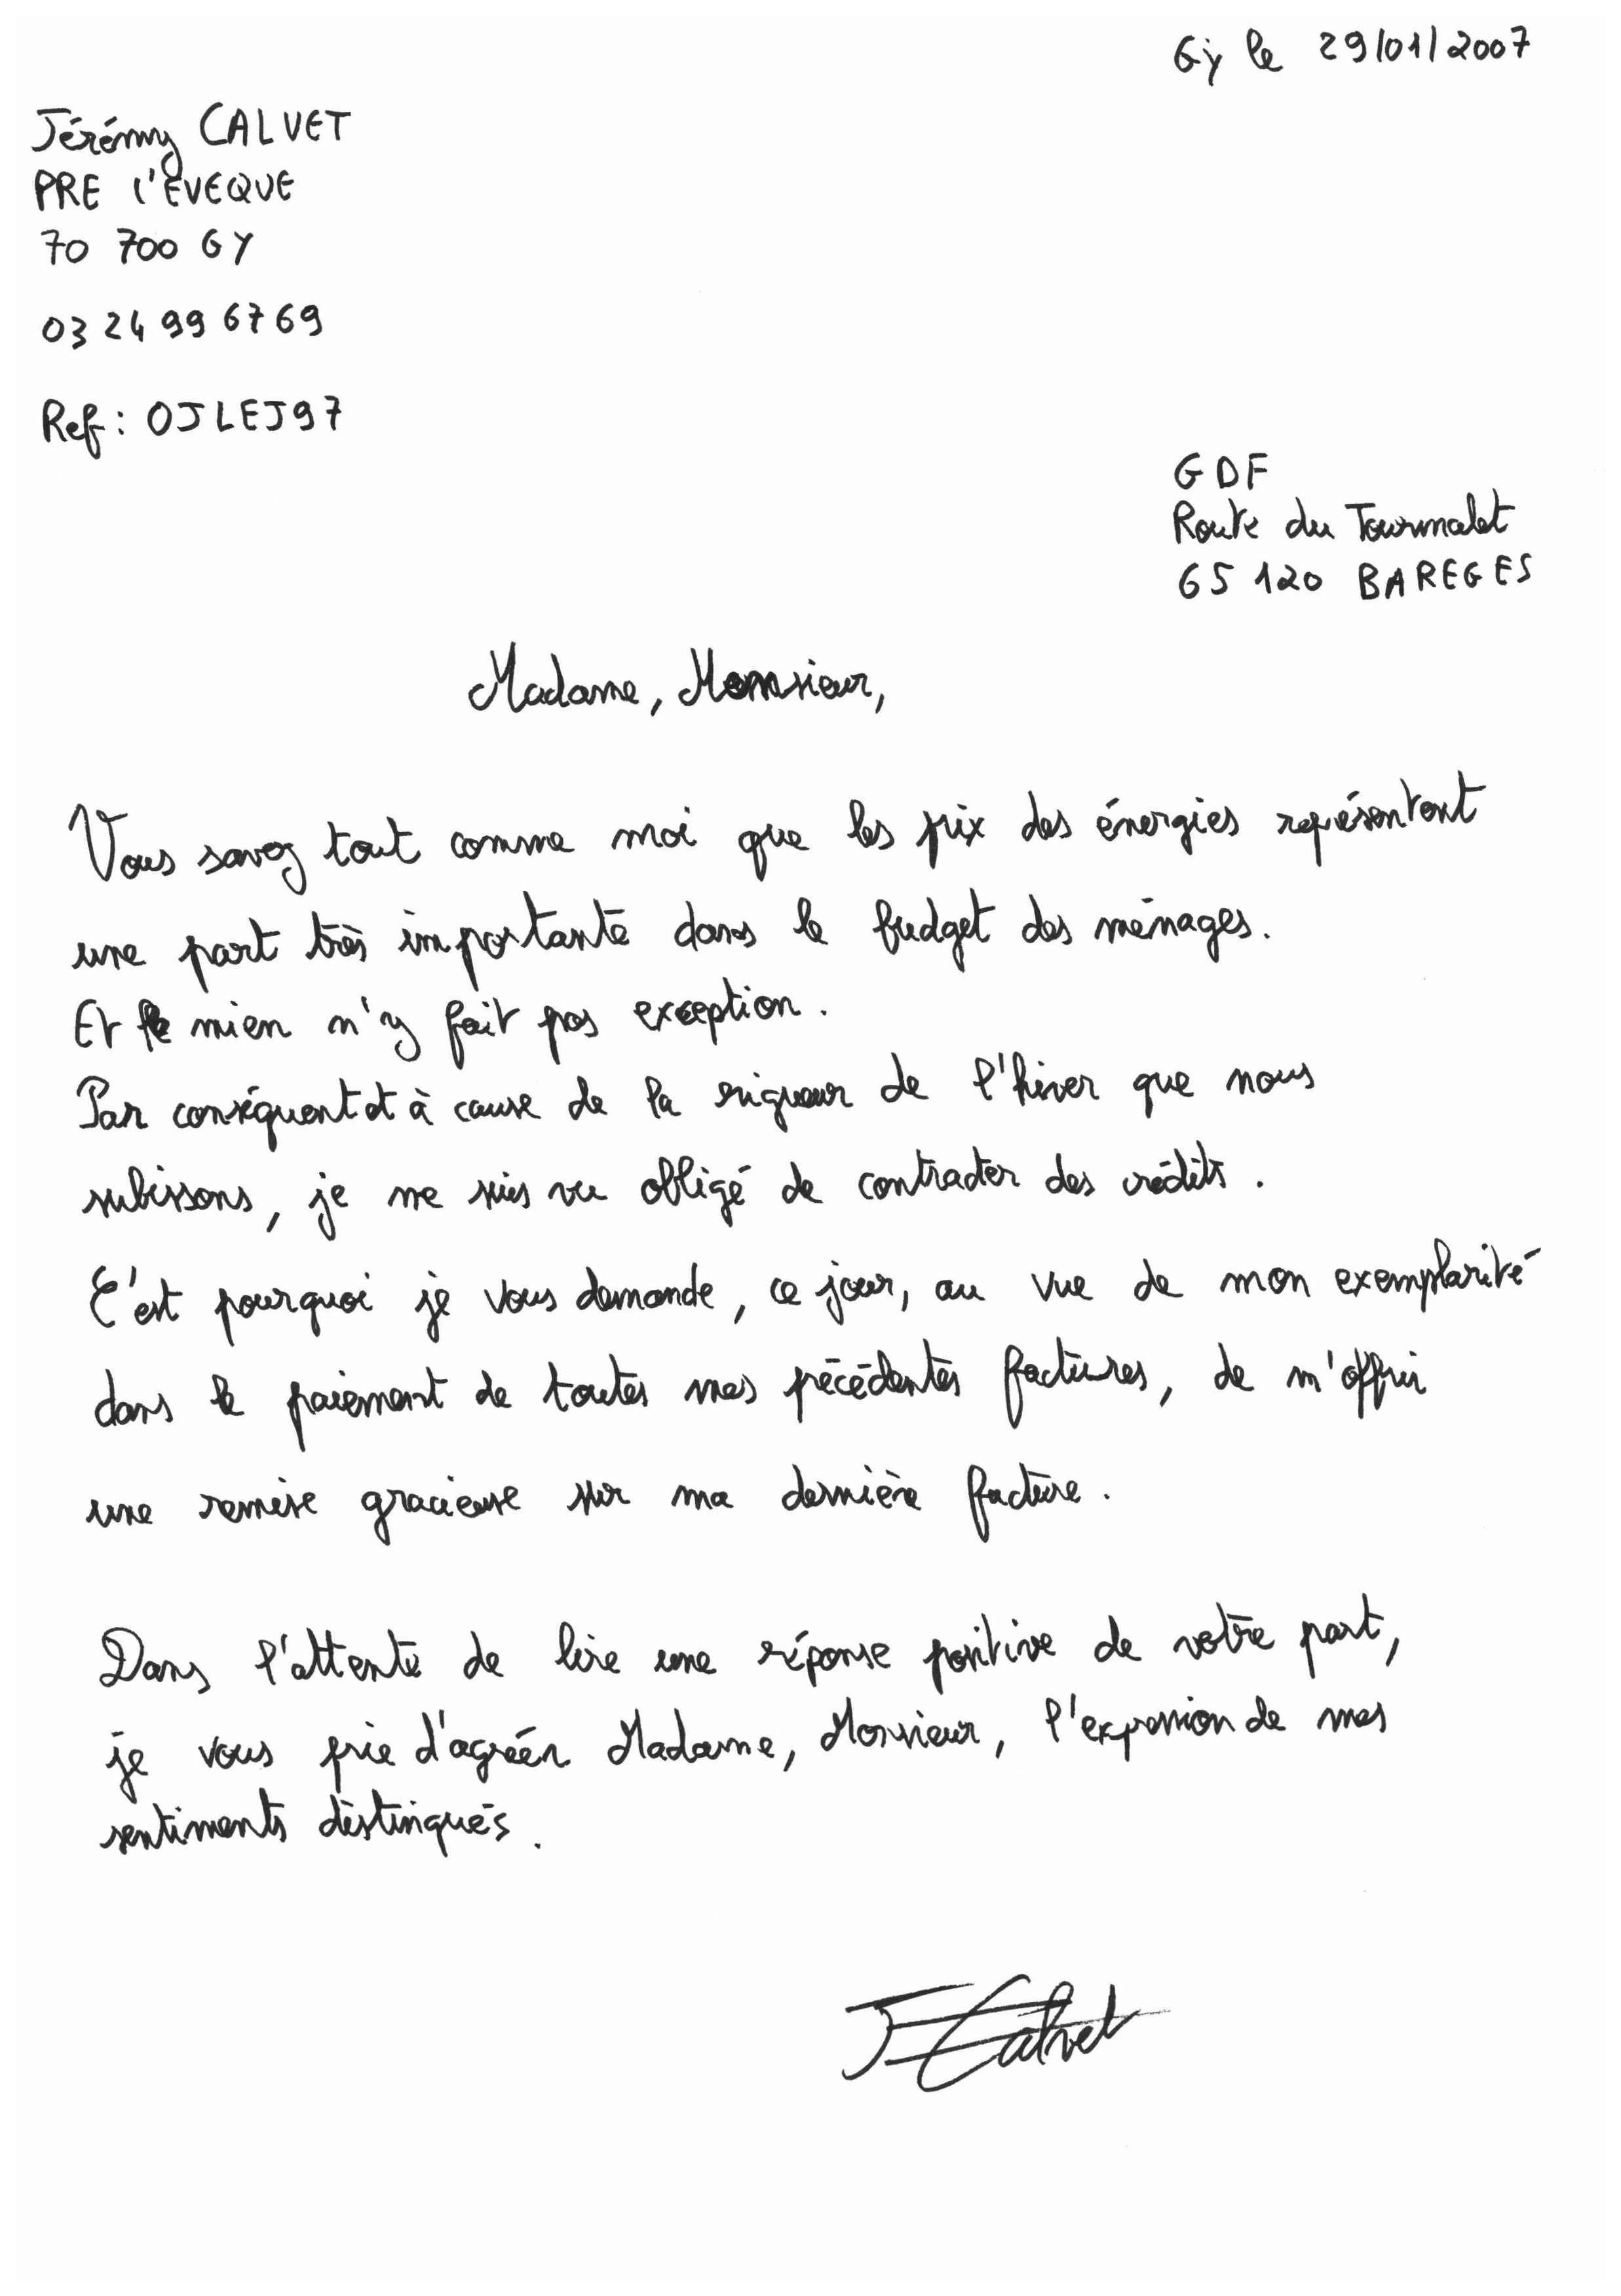 Gy le 29/01/2007
Jérémy CALVET
PRE l'EVEQUE
70 700 GY
03 24 99 67 69
Ref : OJLEJ97
GDF
Route du Tourmalet
65 120 BAREGES
Madame, Monsieur,
Vous savez tout comme moi que les prix des énergies représentent
une part très importante dans le budget des ménages.
Et le mien n'y fait pas exception.
Par conséquent et à cause de la rigueur de l'hiver que nous
subissons, je me suis vu obligé de contracter des crédits.
C'est pourquoi je vous demande, ce jour, au vue de mon exemplarité
dans le paiement de toutes mes précédentes factures, de m'offrir
une remise gracieuse sur ma dernière facture.
Dans l'attente de lire une réponse positive de votre part,
je vous prie d'agréer Madame, Monsieur, l'expression de mes
sentiments distingués.
J Calvet